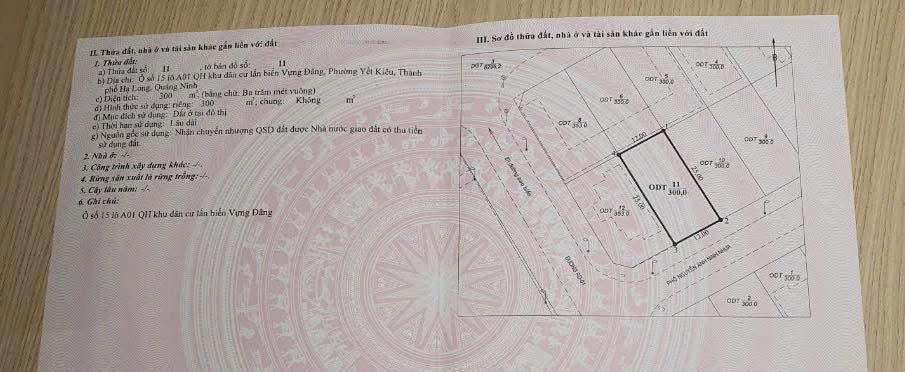 II. Thửa đất, nhà ở và tài sản khác gắn liền với đất
1. Thửa đất:
a) Thửa đất số: 11 , tờ bản đồ số: 11
b) Địa chỉ: Ô số 15 lô A01 QH khu dân cư lấn biển Vựng Đâng, Phường Yết Kiêu, Thành
phố Hạ Long, Quảng Ninh
c) Diện tích: 300 m², (bằng chữ: Ba trăm mét vuông)
d) Hình thức sử dụng: riêng: 300 m², chung: Không m²
đ) Mục đích sử dụng: Đất ở tại đô thị
e) Thời hạn sử dụng: Lâu dài
g) Nguồn gốc sử dụng: Nhận chuyển nhượng QSD đất được Nhà nước giao đất có thu tiền
sử dụng đất.
2. Nhà ở: -/-.
3. Công trình xây dựng khác: -/-.
4. Rừng sản xuất là rừng trồng: -/-.
5. Cây lâu năm: -/-
6. Ghi chú:
Ô số 15 lô A01 QH khu dân cư lấn biển Vựng Đâng
III. Sơ đồ thửa đất, nhà ở và tài sản khác gắn liền với đất
ODT 4 300.0
ODT 5 300.0
ODT 6 300.0
ODT 8 353.0
12.00
1
ODT 9 300.0
ODT 10 300.0
4
ODT 11 300,0
25.00
25.00
ODT 12 353.0
2
3
12.00
PHỐ NGUYỄN ANH NINH NHỰA
ODT 1 300.0
ODT 2 300.0